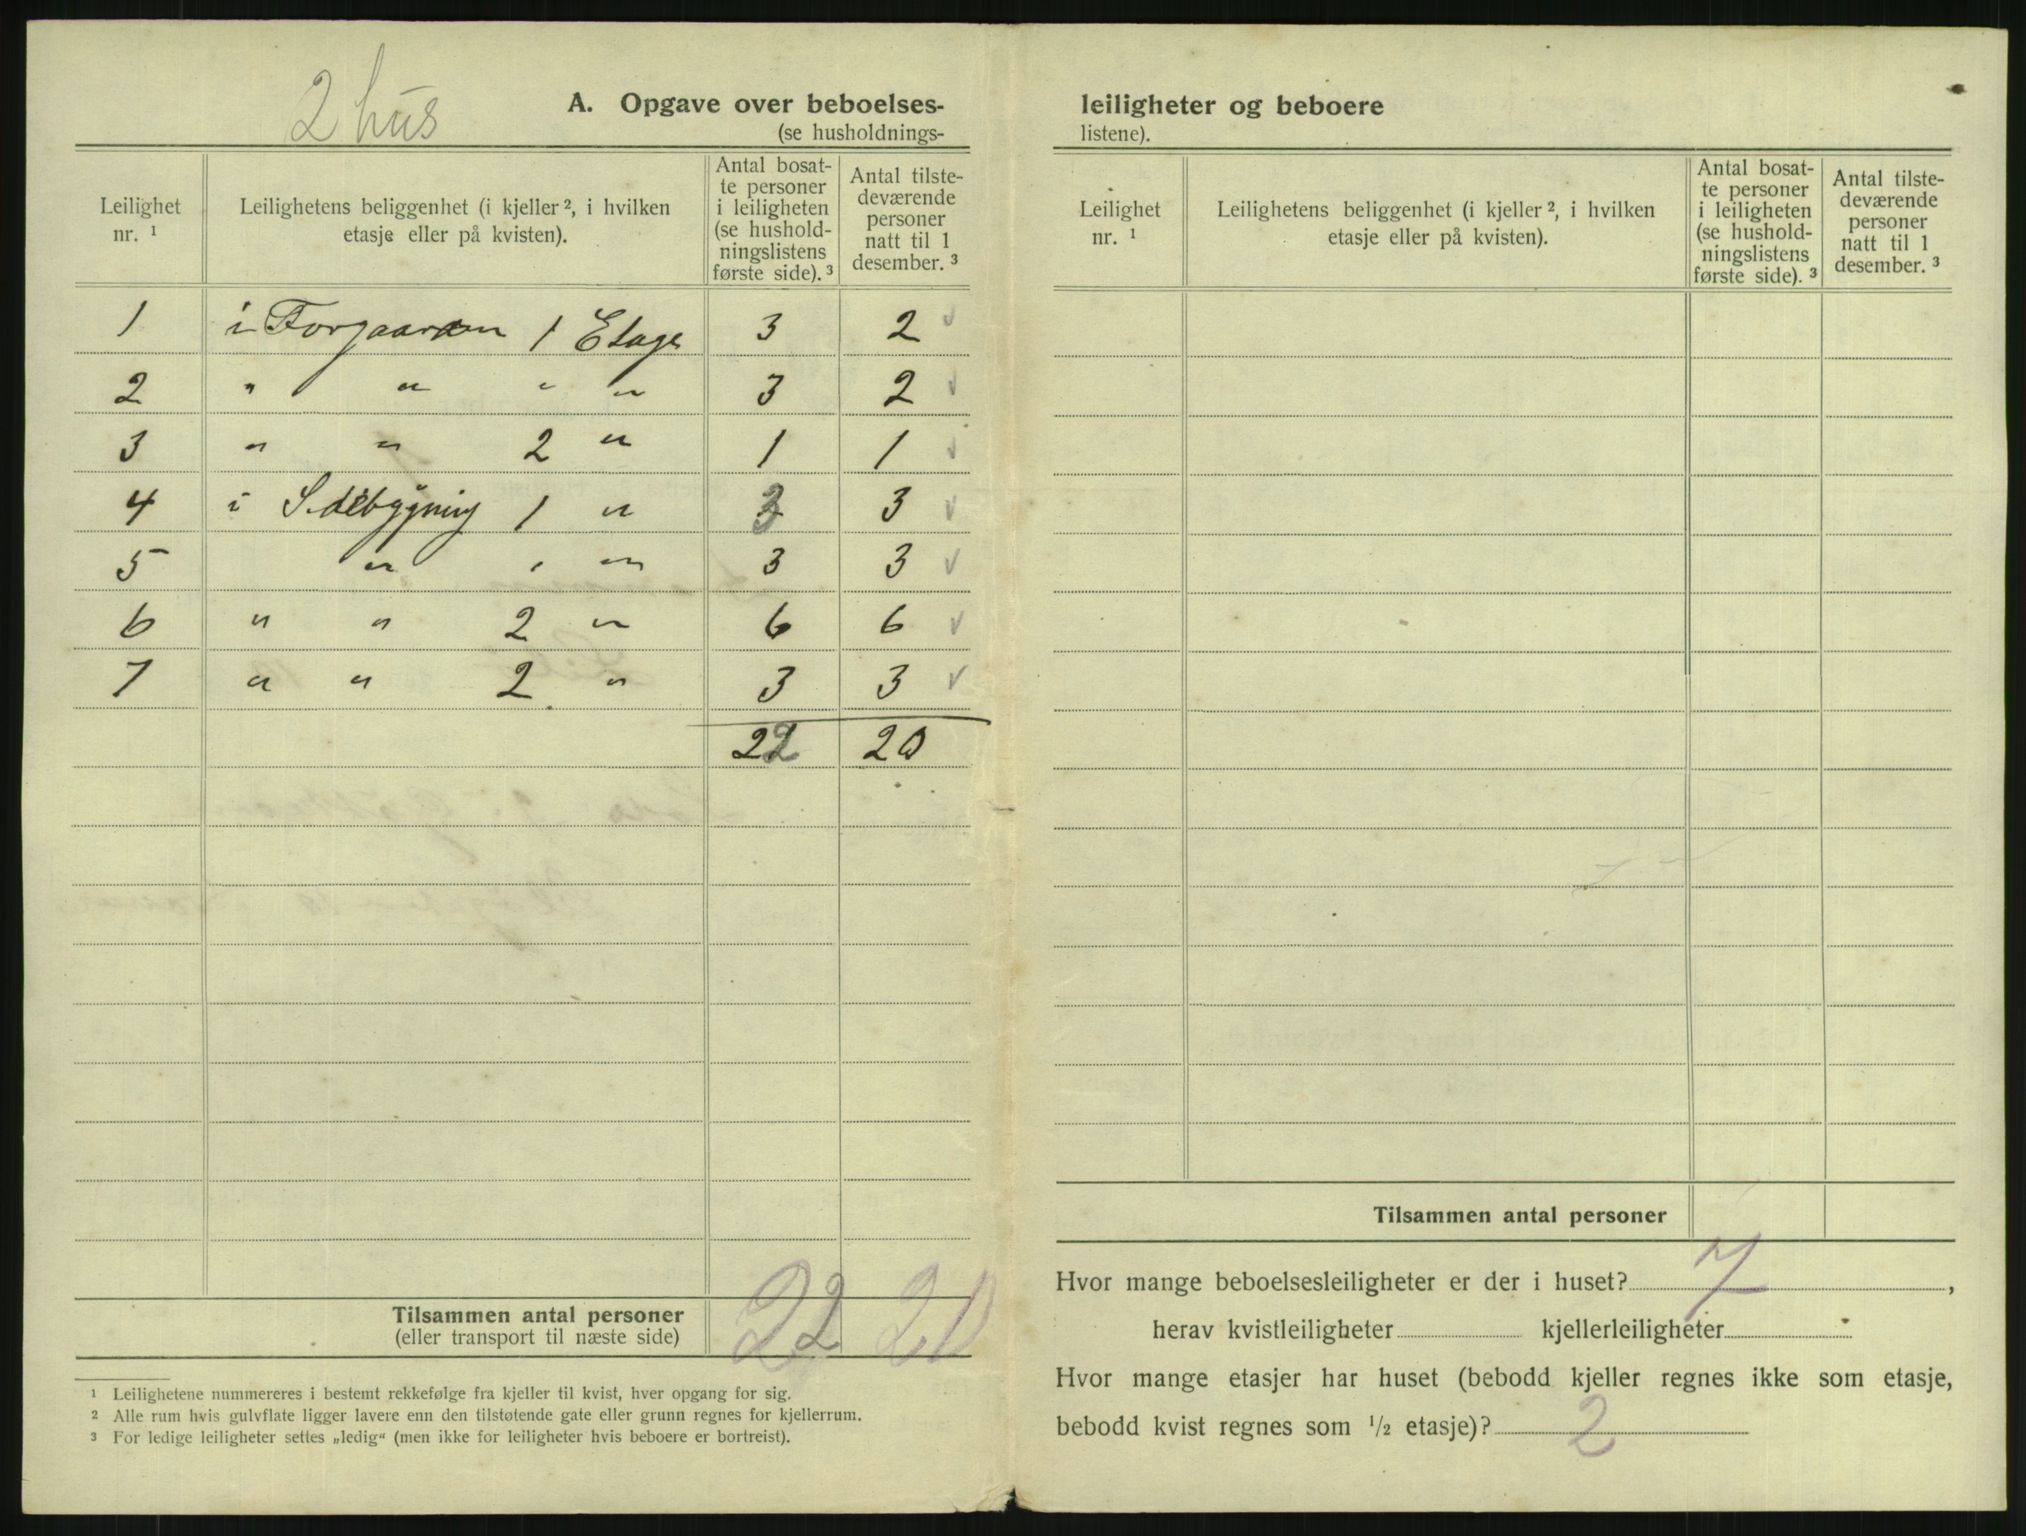 2 hus
A. Opgave over beboelses-
(se husholdnings-
Leilighet nr. ¹ | Leilighetens beliggenhet (i kjeller ², i hvilken etasje eller på kvisten). | Antal bosat-te personer i leiligheten (se hushold-ningslistens første side). ³ | Antal tilste-deværende personer natt til 1 desember. ³
1 i Forgaarden 1 Etage 3 2 ✓
2 " " " " 3 2 ✓
3 " " 2 " 1 1 ✓
4 i Sidebygning 1 " 3 3 ✓
5 " " " 3 3 ✓
6 " " 2 " 6 6 ✓
7 " " 2 " 3 3 ✓
22 20
Tilsammen antal personer 22 20
(eller transport til næste side)
¹ Leilighetene nummereres i bestemt rekkefølge fra kjeller til kvist, hver opgang for sig.
² Alle rum hvis gulvflate ligger lavere enn den tilstøtende gate eller grunn regnes for kjellerrum.
³ For ledige leiligheter settes „ledig“ (men ikke for leiligheter hvis beboere er bortreist).
leiligheter og beboere
listene).
Leilighet nr. ¹ | Leilighetens beliggenhet (i kjeller ², i hvilken etasje eller på kvisten). | Antal bosat-te personer i leiligheten (se hushold-ningslistens første side). ³ | Antal tilste-deværende personer natt til 1 desember. ³
Tilsammen antal personer
Hvor mange beboelsesleiligheter er der i huset? 7,
herav kvistleiligheter kjellerleiligheter
Hvor mange etasjer har huset (bebodd kjeller regnes ikke som etasje,
bebodd kvist regnes som ½ etasje)? 2